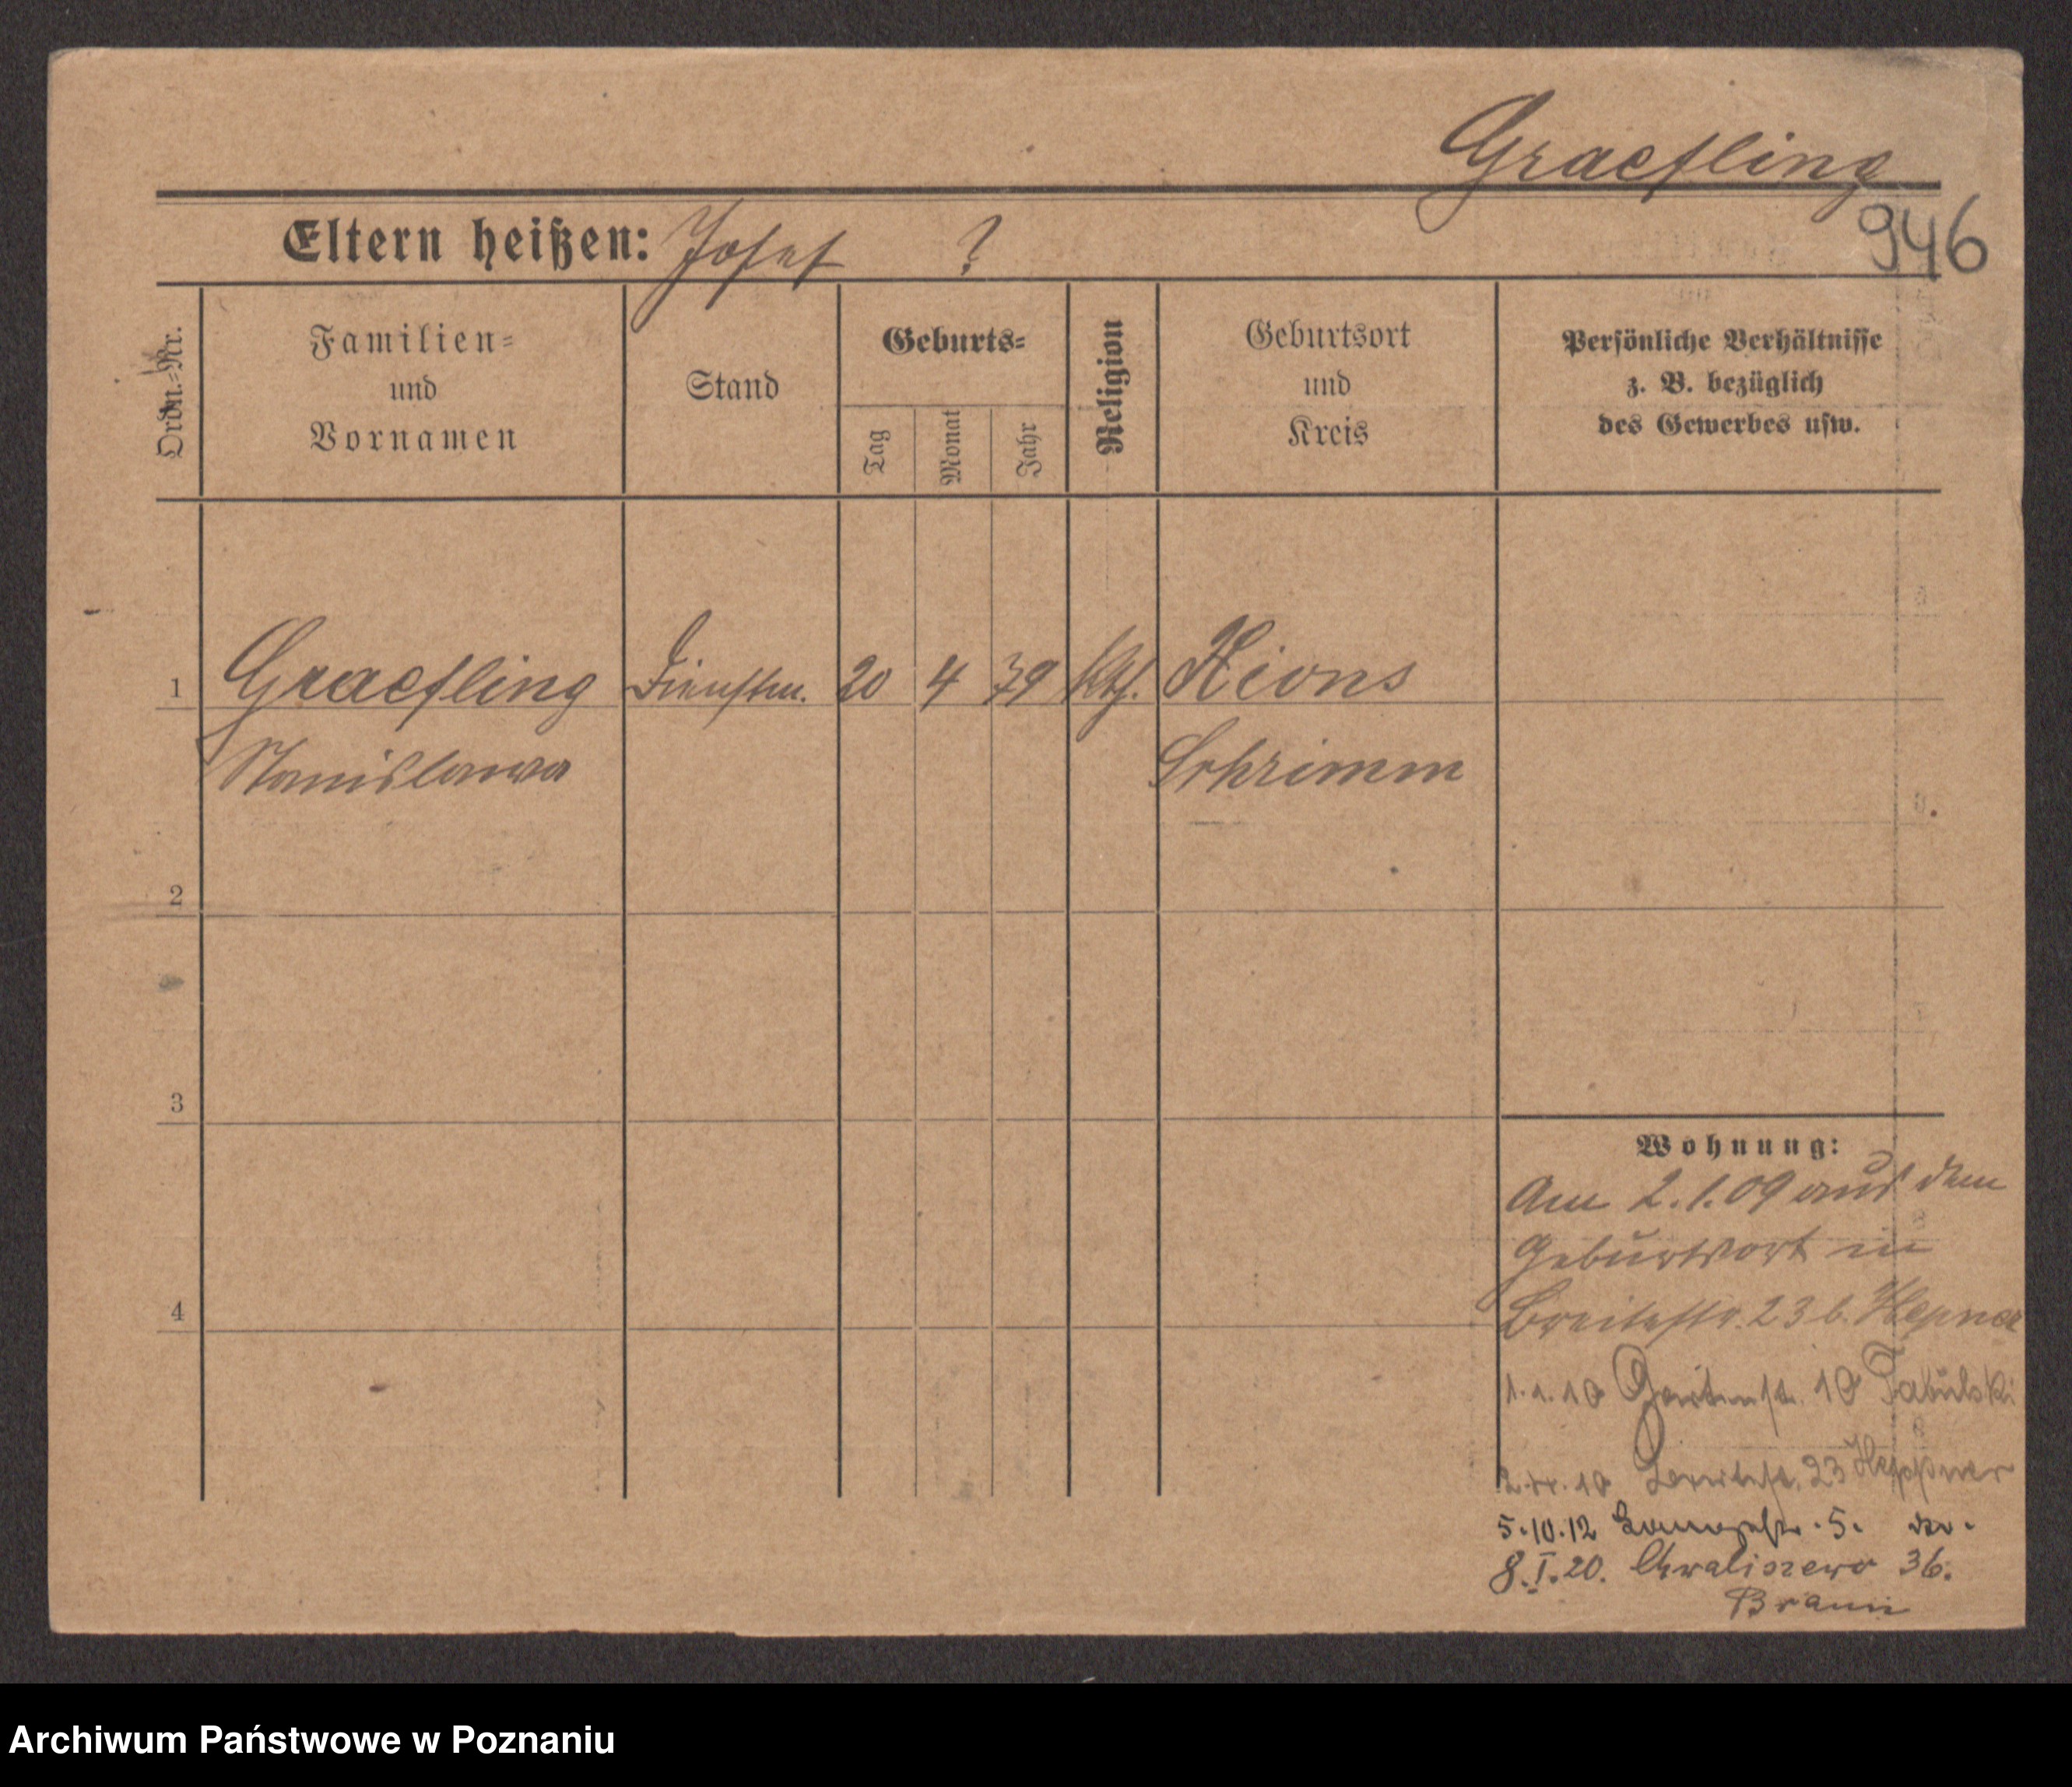 Graefling
946
Eltern heißen: Josef ?
Ordn.-Nr.
Familien-
und
Vornamen
Stand
Geburts-
Tag
Monat
Jahr
Religion
Geburtsort
und
Kreis
Persönliche Verhältnisse
z. B. bezüglich
des Gewerbes usw.
1 Graefling Dienstm. 20 4 79 kth. Xions
Stanislawa Schrimm
2
3
4
Wohnung:
Am 2.1.09 aus dem
Geburtsort in
Breitestr. 23 b. Hepner
1.1.10 Gartenstr. 10
10 Breitestr. 23 Heppner
5.10.12 5.
8.I.20. Chwaliszewo 36.
Braun
Archiwum Państwowe w Poznaniu